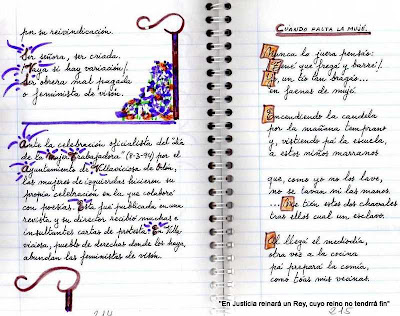 por su reivindicación.
Ser señora, ser criada.
¡Vaya si hay variación!
Ser obrera mal pagada
o feminista de visón.
Ante la celebración oficialista del "día
de la Mujer Trabajadora (8-3-94) por el
Ayuntamiento de Villaviciosa de Odón,
las mujeres de izquierdas hicieron su
propia celebración en la que colaboré
con poesías. Esta fué publicada en una
revista y su director recibió muchas e
insultantes cartas de protesta. En Villa-
viciosa, pueblo de derechas donde los haya,
abundan las feministas de visón.
214
CUANDO FALTA LA MUJÉ.
Nunca la juera pensao:
¡Fuése que fregá y barré!
un tío tan bragao...
en faenas de mujé.
Encendiendo la candela
por la mañana temprano
y, vistiendo pa la escuela,
a estos niños marranos
que, como yo no los lave,
no se lavan ni las manos.
... Me tién estos dos chavales
tras ellos cual un esclavo.
Al llegá el mediodía,
otra vez a la cocina
pa prepará la comía,
como tóas mis vecinas.
"En Justicia reinará un Rey, cuyo reino no tendrrá fin"
215